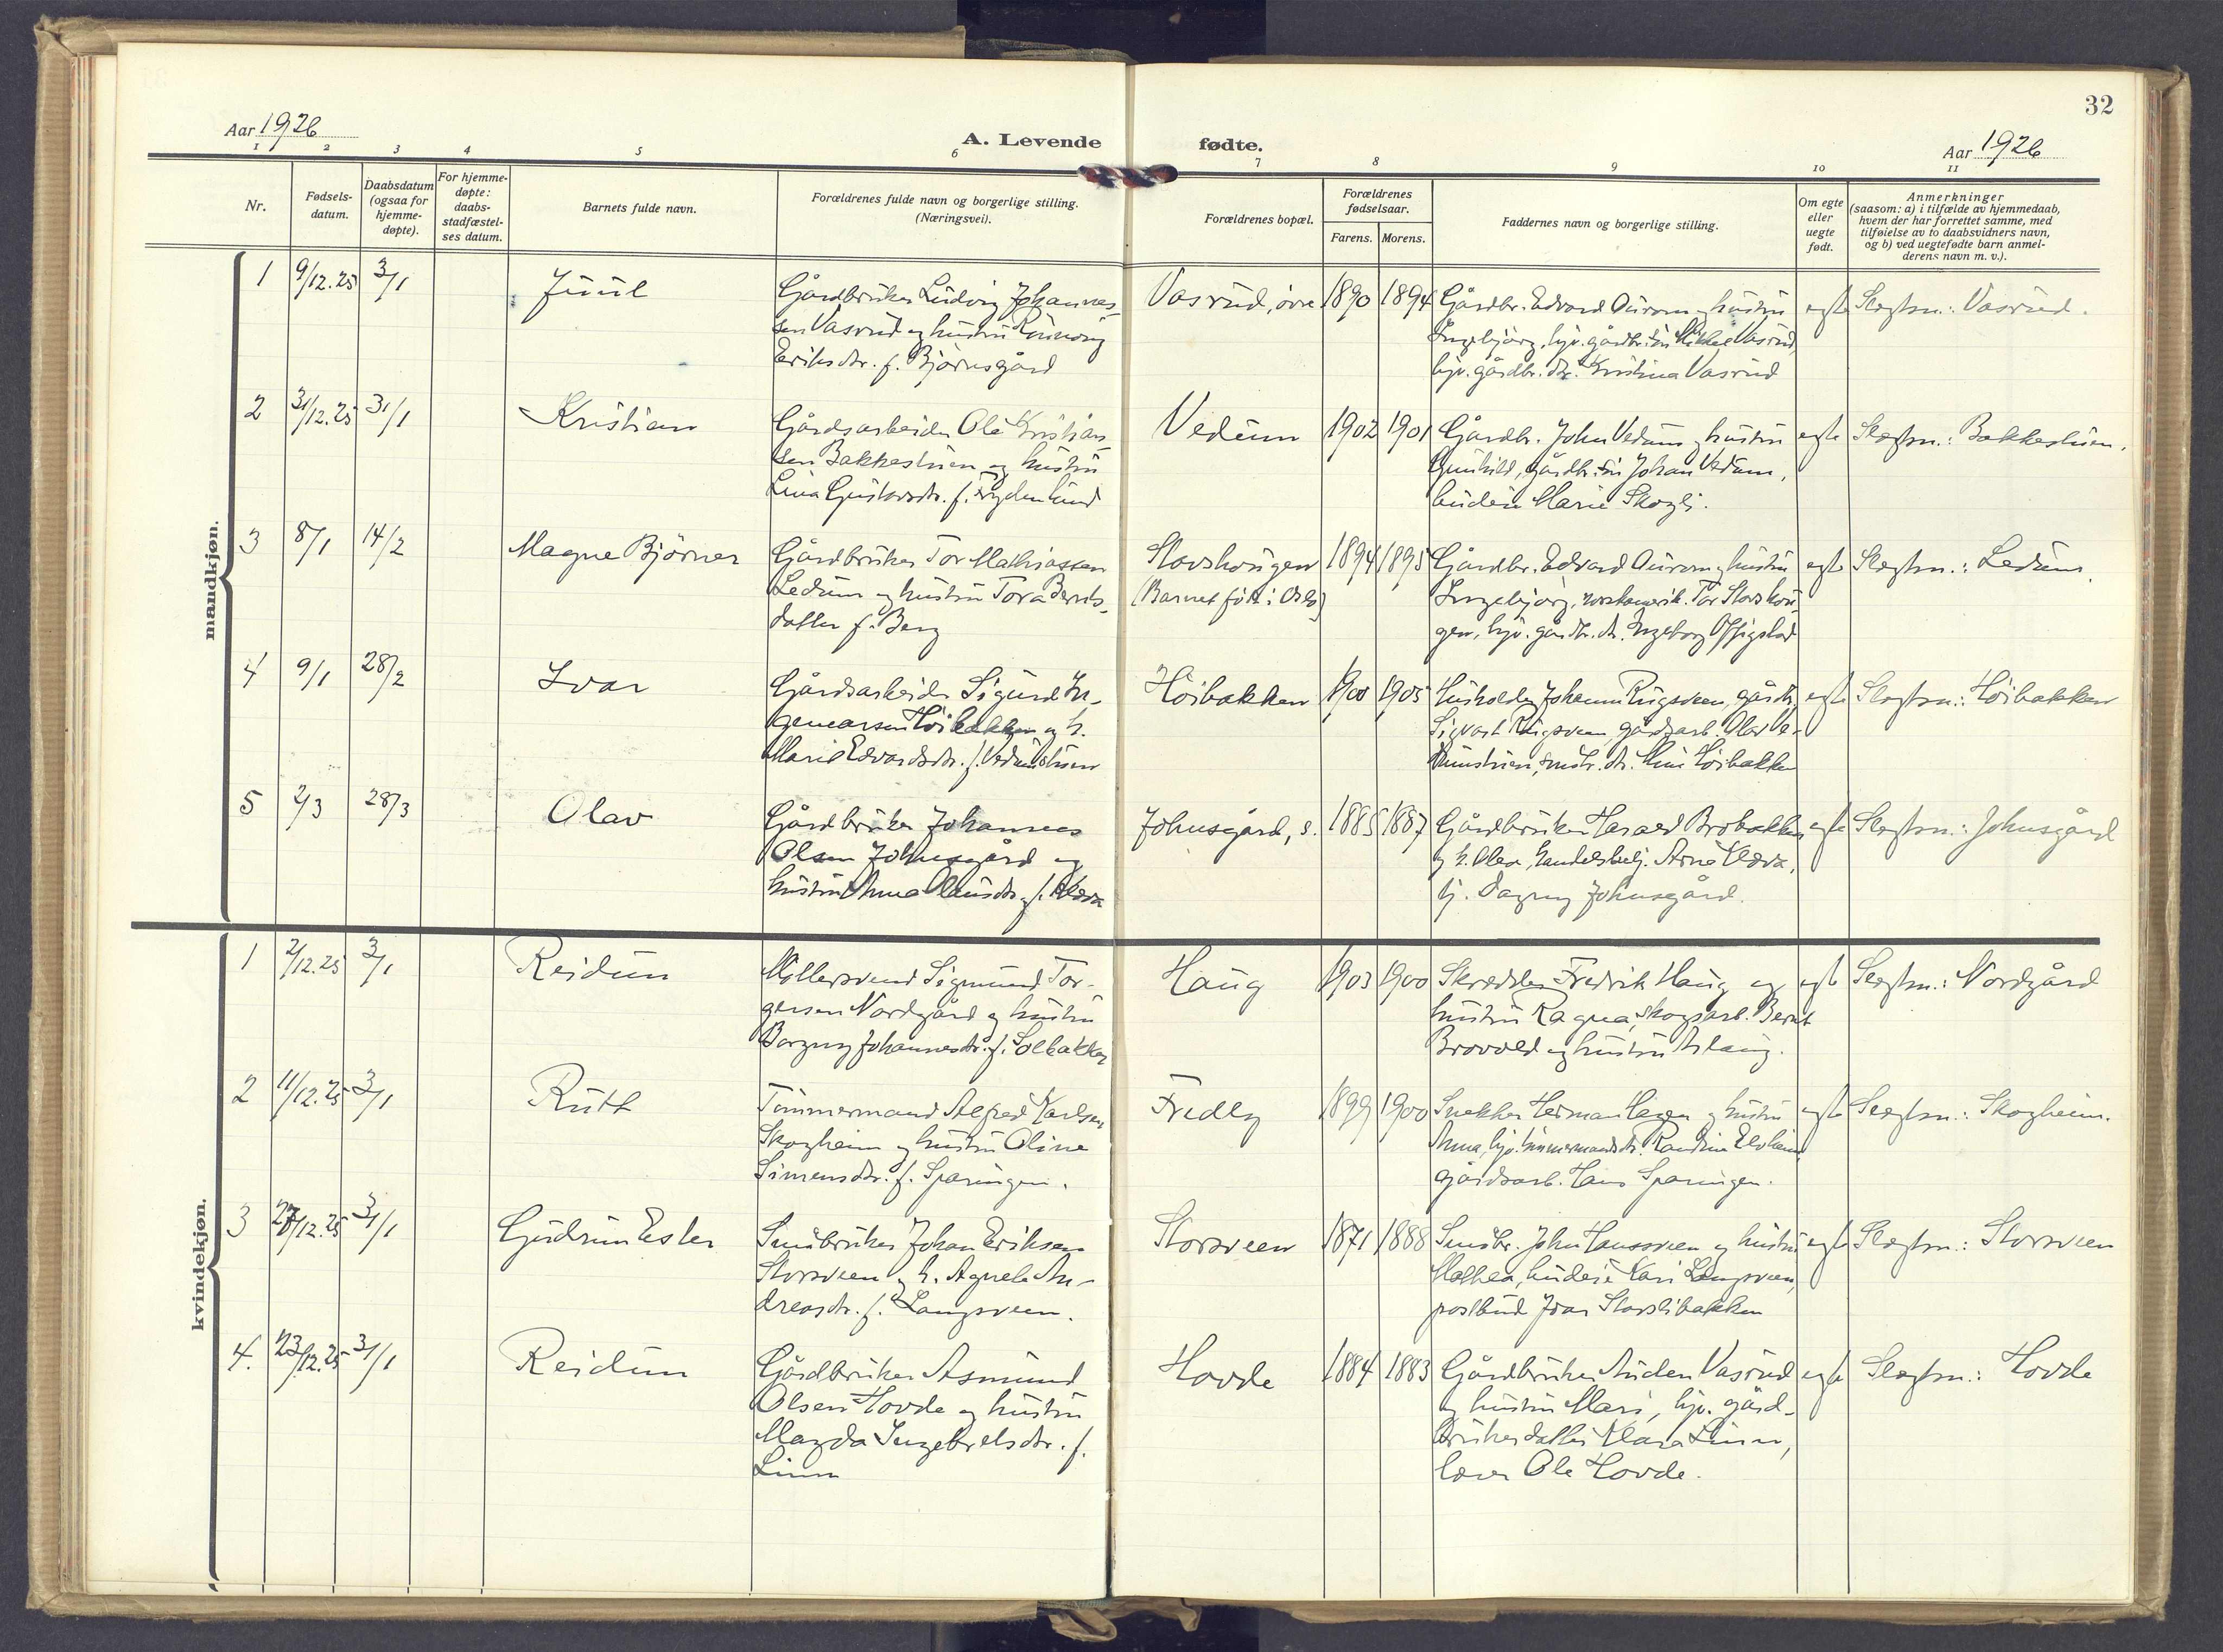 32
Aar 1926
A. Levende
fødte.
Aar 1926
1 2 3 4 5 6 7 8 9 10 11
Nr.
Fødsels-
datum.
Daabsdatum
(ogsaa for
hjemme-
døpte).
For hjemme-
døpte:
daabs-
stadfæstel-
ses datum.
Barnets fulde navn.
Forældrenes fulde navn og borgerlige stilling.
(Næringsvei).
Forældrenes bopæl.
Forældrenes
fødselsaar.
Farens. Morens.
Faddernes navn og borgerlige stilling.
Om egte
eller
uegte
født.
Anmerkninger
(saasom: a) i tilfælde av hjemmedaab,
hvem der har forrettet samme, med
tilføielse av to daabsvidners navn,
og b) ved uegtefødte barn anmel-
derens navn m. v.).
mandkjøn.
1 9/12.25 3/1 Juul
Gårdbruker Ludvig Johannes-
sen Vasrud og hustru Rönnaug
Eriksdtr. f. Björnsgård
Vasrud, övre 1890 1894
Gårdbr. Edvard Aurom og hustru
Ingebjörg, hjv. gårdbr. sön Mikkel Vasrud,
hjv. gårdbr. dtr. Kristina Vasrud
egte Slegtsn.: Vasrud.
2 31/12.25 31/1 Kristian
Gårdsarbeider Ole Kristian-
sen Bakkestuen og hustru
Lina Gustavsdtr. f. Frydenlund
Vedum 1902 1901
Gårdbr. John Vedum og hustru
Gunhild, gårdbr. sön Johan Vedum,
budeie Marie Skogli.
egte Slegtsn.: Bakkestuen.
3 8/1 14/2 Magne Björner
Gårdbruker Tor Mathiassen
Ledum og hustru Tora Bernts-
datter f. Berg
Storshaugen
(Barnet född i Oslo)
1894 1895
Gårdbr. Edvard Aurom og hustru
Ingebjörg, norskamerik. Tor Storshau-
gen, hjv. gårdbr. dtr. Ingeborg Offigstad
egte Slegtsn.: Ledum.
4 9/1 28/2 Ivar
Gårdsarbeider Sigurd In-
gemarsen Höibakken og h.
Marie Edvardsdtr. f. Vedumstuen
Höibakken 1900 1905
Husholdrs. Johanne Rugsveen, gårdbr.
Sigvart Rugsveen, gårdsarb. Olav Ve-
dumstuen, småbr. dtr. Höibakken
egte Slegtsn.: Höibakken
5 2/3 28/3 Olav
Gårdbruker Johannes
Olsen Johnsgård og
hustru Anna Olausdtr. f. Klæva
Johnsgård, s. 1885 1887
Gårdbruker Harald Brobakken
og h. Olea, handelsbetj. Arne Klæva,
tj. Dagny Johnsgård.
egte Slegtsn.: Johnsgård
kvindekjøn.
1 2/12.25 3/1 Reidun
Möllersvend Sigmund Tor-
gersen Nordgård og hustru
Borgny Johannesdtr. f. Solbakken
Haug 1903 1900
Skredder Fredrik Haug og
hustru Ragna, skogsarb. Bernt
Brovold og hustru Aslaug.
egte Slegtsn.: Nordgård
2 11/12.25 3/1 Ruth
Tömmermand Alfred Karlsen
Skogheim og hustru Oline
Simensdtr. f. Sparingen.
Fredly 1899 1900
Snekker Herman Hagen og hustru
Anna, hjv. tömmermandsdtr. Randine Elvheim,
gårdsarb. Hans Sparingen.
egte Slegtsn.: Skogheim.
3 27/12.25 31/1 Gudrun Ester
Småbruker Johan Eriksen
Storsveen og h. Agnete An-
dreasdtr. f. Langsveen.
Storsveen 1871 1888
Småbr. John Hanssveen og hustru
Mathea, budeie Kari Langsveen,
postbud Ivar Storslibakken
egte Slegtsn.: Storsveen
4. 23/12.25 31/1 Reidun
Gårdbruker Asmund
Olsen Hovde og hustru
Magda Ingebretsdtr. f.
Linn
Hovde 1884 1883
Gårdbruker Auden Vasrud
og hustru Mari, hjv. gård-
brukerdatter Klara Linn,
lærer Ole Hovde.
egte Slegtsn.: Hovde